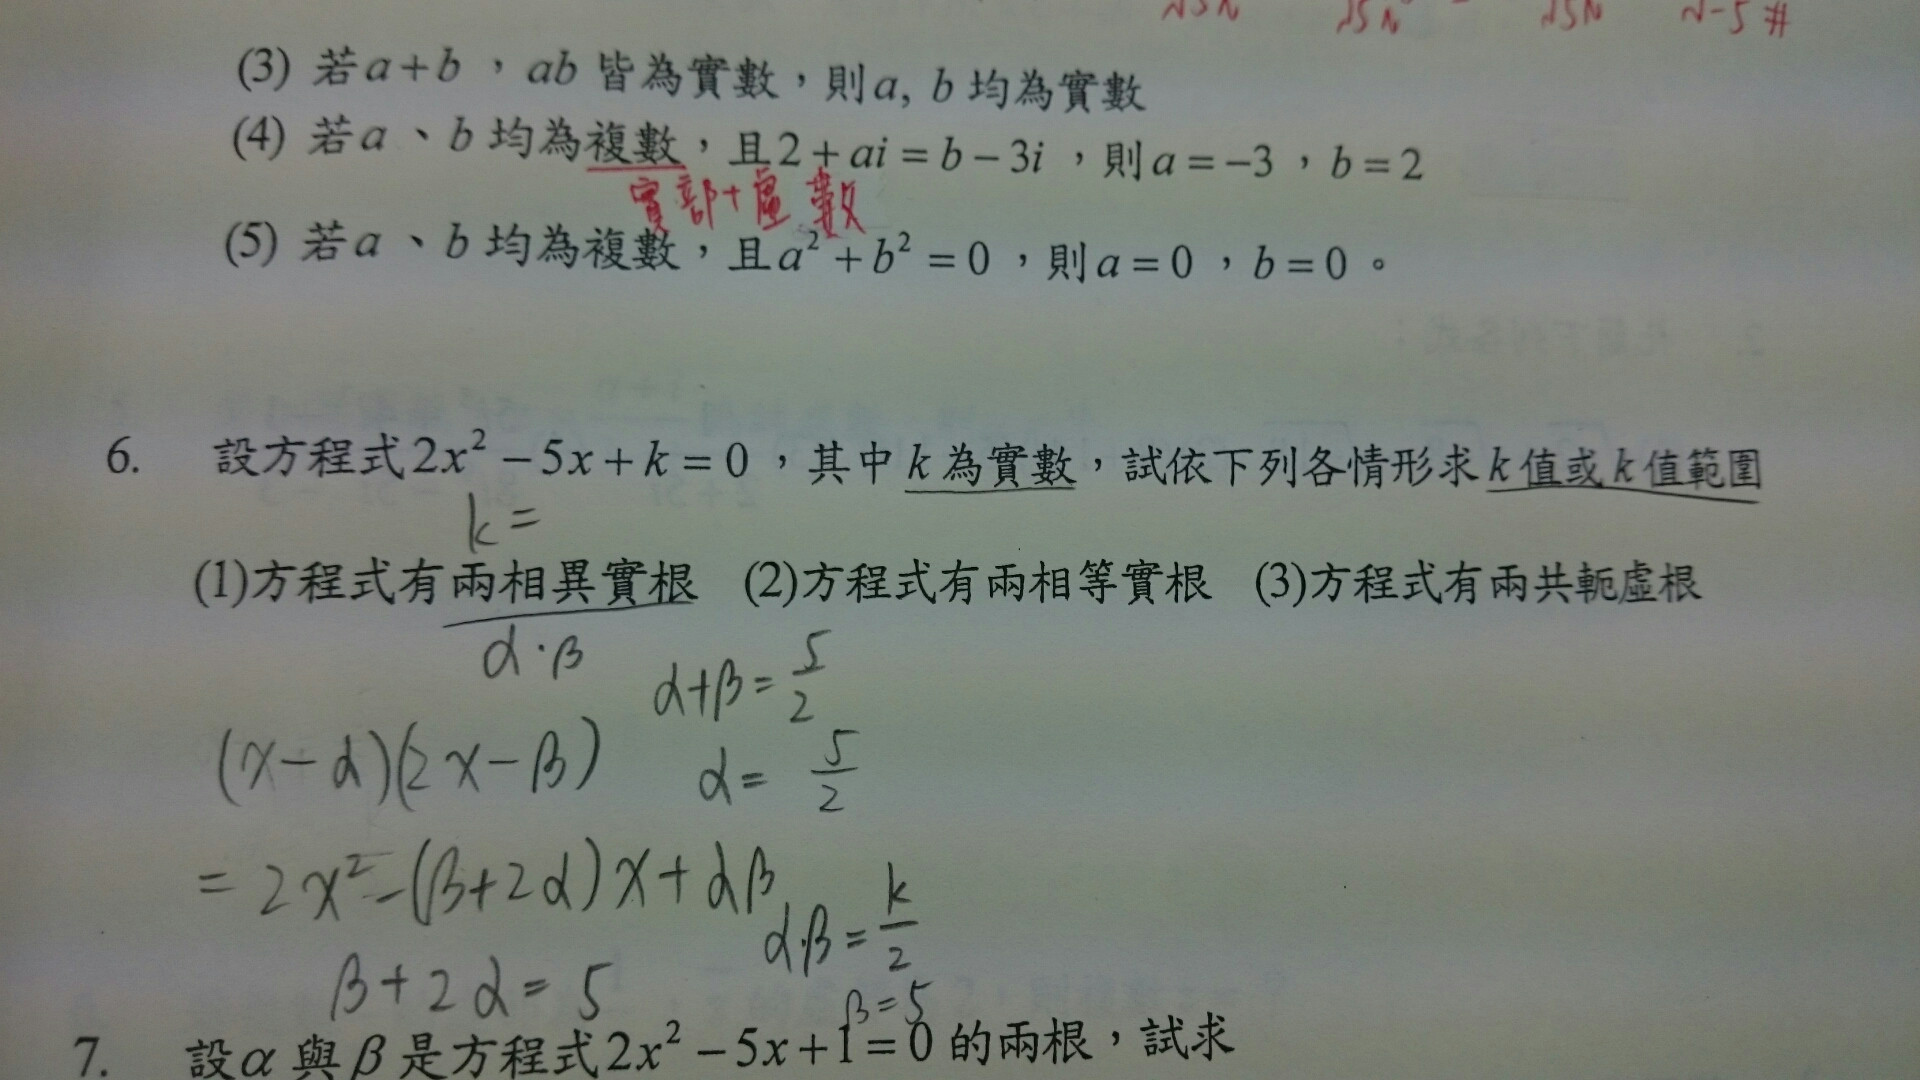 √-5 #
(3) 若a+b，ab皆為實數，則a, b均為實數
(4) 若a、b均為複數，且2+ai=b-3i，則a=-3，b=2
實部+虛數
(5) 若a、b均為複數，且a²+b²=0，則a=0，b=0。
6. 設方程式2x²-5x+k=0，其中k為實數，試依下列各情形求k值或k值範圍
k=
(1)方程式有兩相異實根 (2)方程式有兩相等實根 (3)方程式有兩共軛虛根
α·β
α+β=5/2
(x-α)(2x-β) α=5/2
=2x²-(β+2α)x+αβ
α·β=k/2
β+2α=5 β=5
7. 設α與β是方程式2x²-5x+1=0的兩根，試求